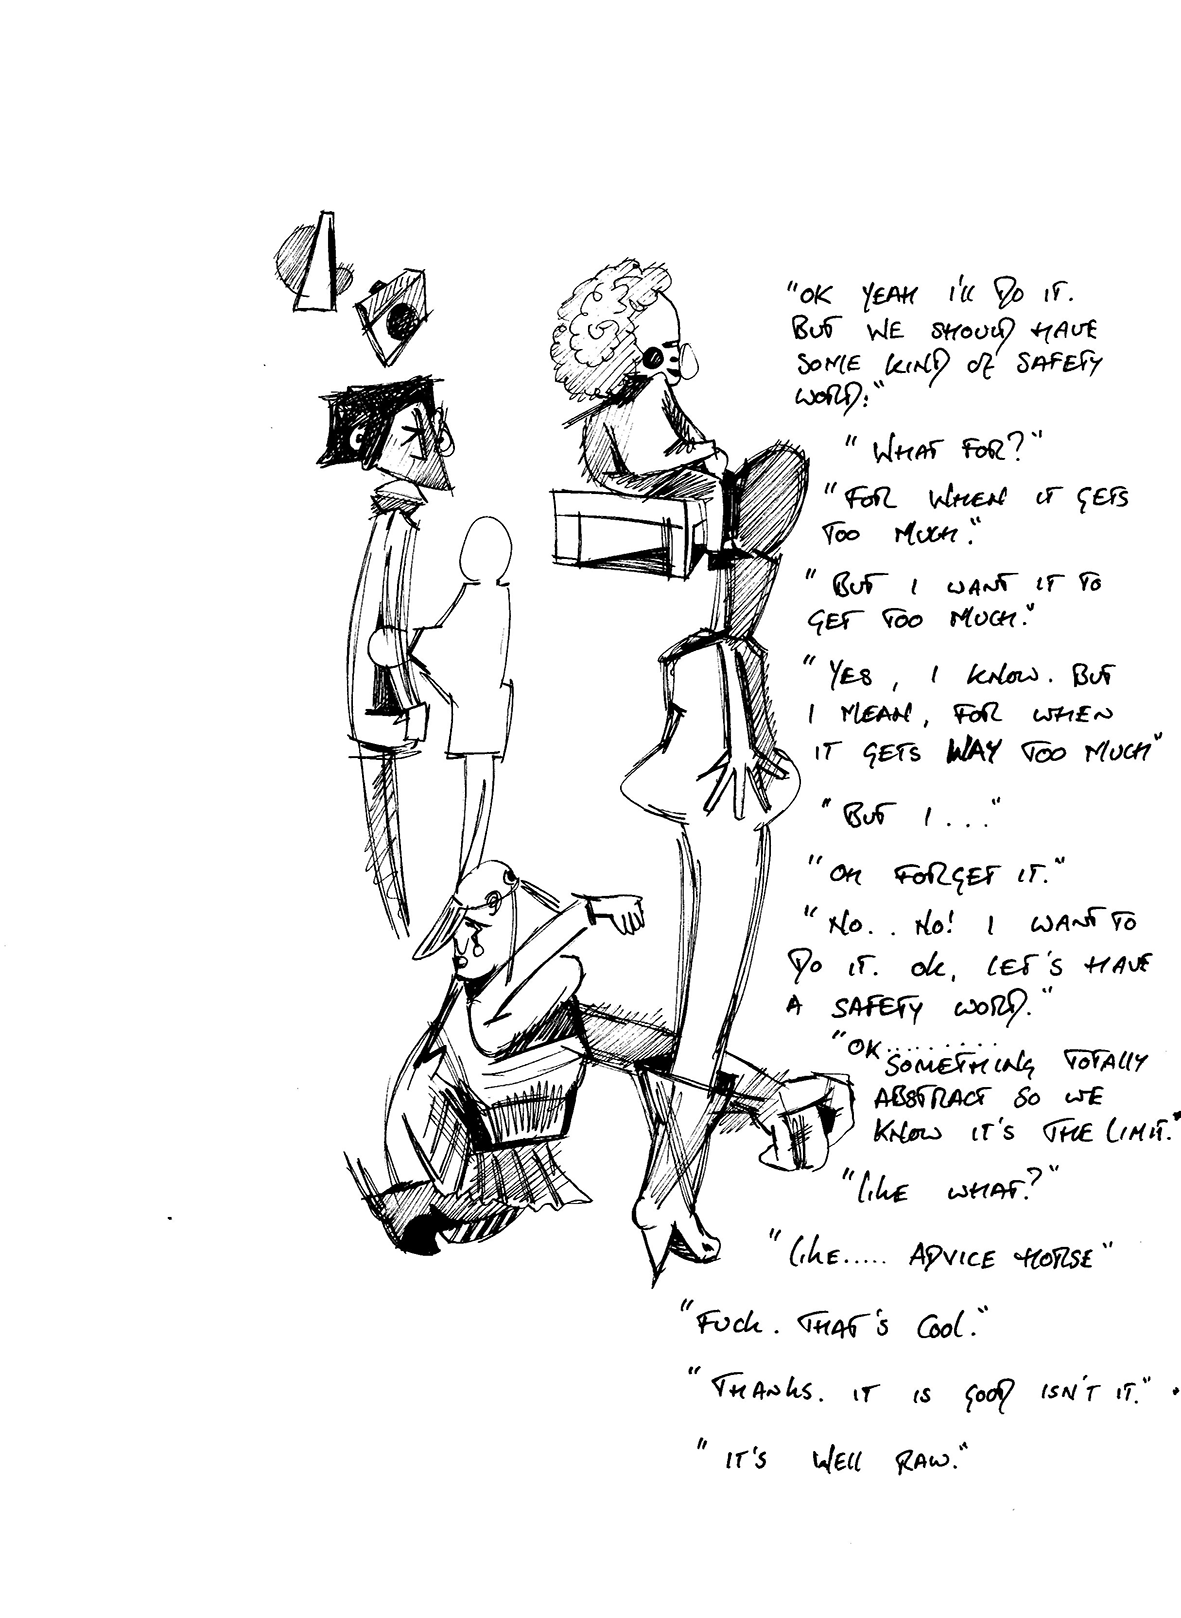 "OK YEAH I'll DO IT.
BUT WE SHOULD HAVE
SOME KIND OF SAFETY
WORD."
"WHAT FOR?"
"FOR WHEN IT GETS
TOO MUCH."
"BUT I WANT IT TO
GET TOO MUCH."
"YES, I KNOW. BUT
I MEAN, FOR WHEN
IT GETS WAY TOO MUCH"
"BUT I..."
"OH FORGET IT."
"NO.. NO! I WANT TO
DO IT. OK, LET'S HAVE
A SAFETY WORD."
"OK.........
SOMETHING TOTALLY
ABSTRACT SO WE
KNOW IT'S THE LIMIT."
"LIKE WHAT?"
"LIKE..... ADVICE HORSE"
"FUCK. THAT'S COOL."
"THANKS. IT IS GOOD ISN'T IT."
"IT'S WELL RAW."